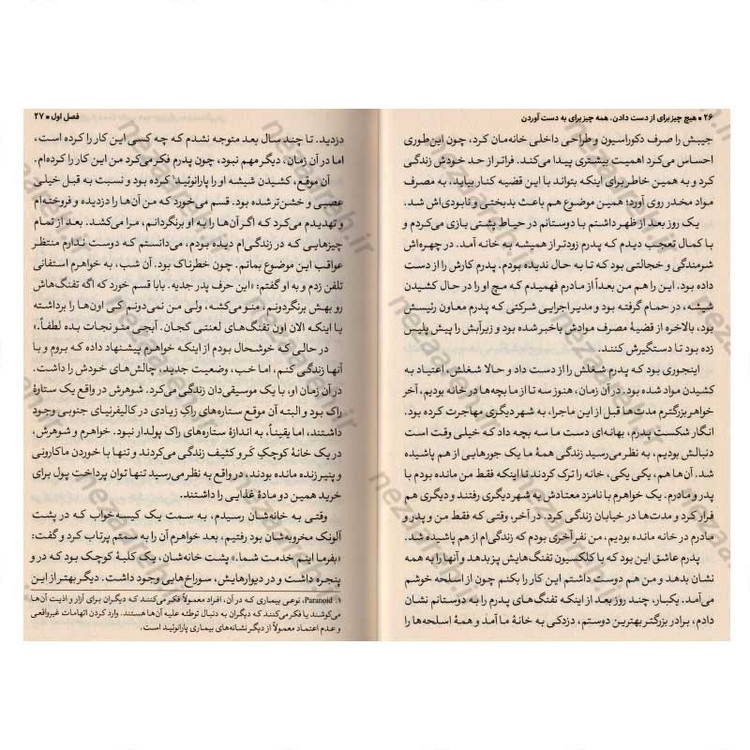 ۲۶ • هیچ چیز برای از دست دادن، همه چیز برای به دست آوردن
جیبش را صرف دکوراسیون و طراحی داخلی خانه‌مان کرد، چون این‌طوری
احساس می‌کرد اهمیت بیشتری پیدا می‌کند. فراتر از حد خودش زندگی
کرد و به همین خاطر برای اینکه بتواند با این قضیه کنار بیاید، به مصرف
مواد مخدر روی آورد؛ همین موضوع هم باعث بدبختی و نابودی‌اش شد.
یک روز بعد از ظهر داشتم با دوستانم در حیاط پشتی بازی می‌کردم و
با کمال تعجب دیدم که پدرم زودتر از همیشه به خانه آمد. در چهره‌اش
شرمندگی و خجالتی بود که تا به حال ندیده بودم. پدرم کارش را از دست
داده بود. این را هم من بعداً از مادرم فهمیدم که مچ او را در حال کشیدن
شیشه، در حمام گرفته بود و مدیر اجرایی شرکتی که پدرم معاون رئیسش
بود، بالاخره از قضیهٔ مصرف موادش باخبر شده بود و زیرآبش را پیش پلیس
زده بود تا دستگیرش کنند.
این‌جوری بود که پدرم شغلش را از دست داد و حالا شغلش، اعتیاد به
کشیدن مواد شده بود. در آن زمان، هنوز سه تا از ما بچه‌ها در خانه بودیم، آخر
خواهر بزرگترم مدت‌ها قبل از این ماجرا، به شهر دیگری مهاجرت کرده بود.
انگار شکست پدرم، بهانه‌ای دست ما سه بچه داد که خیلی وقت است
دنبالش بودیم، به نظر می‌رسید زندگی همهٔ ما یک جورهایی از هم پاشیده
شد. آن‌ها هم، یکی یکی، خانه را ترک کردند تا اینکه فقط من مانده بودم با
پدر و مادرم. یک خواهرم با نامزد معتادش به شهر دیگری رفتند و دیگری هم
فرار کرد و مدت‌ها در خیابان زندگی کرد. در آخر، وقتی که فقط من و پدر و
مادرم در خانه مانده بودیم، من نفر آخری بودم که زندگی‌ام از هم پاشیده شد.
پدرم عاشق این بود که با کلکسیون تفنگ‌هایش پز بدهد و آنها را به همه
نشان بدهد و من هم دوست داشتم این کار را بکنم چون از اسلحه خوشم
می‌آمد. یکبار، چند روز بعد از اینکه تفنگ‌های پدرم را به دوستانم نشان
دادم، برادر بزرگتر بهترین دوستم، دزدکی به خانهٔ ما آمد و همهٔ اسلحه‌ها را
فصل اول • ۲۷
دزدید. تا چند سال بعد متوجه نشدم که چه کسی این کار را کرده است،
اما در آن زمان، دیگر مهم نبود، چون پدرم فکر می‌کرد من این کار را کرده‌ام.
آن موقع، کشیدن شیشه او را پارانوئید۱ کرده بود و نسبت به قبل خیلی
عصبی و خشن‌تر شده بود. قسم می‌خورد که من آن‌ها را دزدیده و فروخته‌ام
و تهدیدم می‌کرد که اگر آن‌ها را به او برنگردانم، مرا می‌کشد. بعد از تمام
چیزهایی که در زندگی‌ام دیده بودم، می‌دانستم که دوست ندارم منتظر
عواقب این موضوع بمانم. چون خطرناک بود. آن شب، به خواهرم استفانی
تلفن زدم و به او گفتم: «این حرف پدر جدیه. بابا قسم خورد که اگه تفنگ‌هاش
رو بهش برنگردونم، منو می‌کشه، ولی من نمی‌دونم کی اون‌ها را برداشته
یا اینکه الان اون تفنگ‌های لعنتی کجان. آبجی منو نجات بده لطفاً.»
در حالی که خوشحال بودم از اینکه خواهرم پیشنهاد داده که بروم و با
آنها زندگی کنم، اما خب، وضعیت جدید، چالش‌های خودش را داشت.
در آن زمان او، با یک موسیقی‌دان زندگی می‌کرد. شوهرش در واقع یک ستارهٔ
راک بود و البته آن موقع ستاره‌های راک زیادی در کالیفرنیای جنوبی وجود
داشتند، اما یقیناً، به اندازهٔ ستاره‌های راک پولدار نبود. خواهرم و شوهرش،
در یک خانهٔ کوچک گر و کثیف زندگی می‌کردند و تنها با خوردن ماکارونی
و پنیر زنده مانده بودند، در واقع به نظر می‌رسید تنها توان پرداخت پول برای
خرید همین دو مادهٔ غذایی را داشتند.
وقتی به خانه‌شان رسیدم، به سمت یک کیسه‌خواب که در پشت
آلونک مخروبه‌شان بود رفتیم، بعد خواهرم آن را به سمتم پرتاب کرد و گفت:
«بفرما اینم خدمت شما.» پشت خانه‌شان، یک کلبهٔ کوچک بود که در و
پنجره داشت و در دیوارهایش، سوراخ‌هایی وجود داشت. دیگر بهتر از این
۱. Paranoid، نوعی بیماری که در آن، افراد معمولاً فکر می‌کنند که دیگران برای آزار و اذیت آن‌ها
می‌کوشند یا فکر می‌کنند که دیگران به دنبال توطئه علیه آن‌ها هستند. وارد کردن اتهامات غیرواقعی
و عدم اعتماد معمولاً از دیگر نشانه‌های بیماری پارانوئید است.
nezaareh.ir